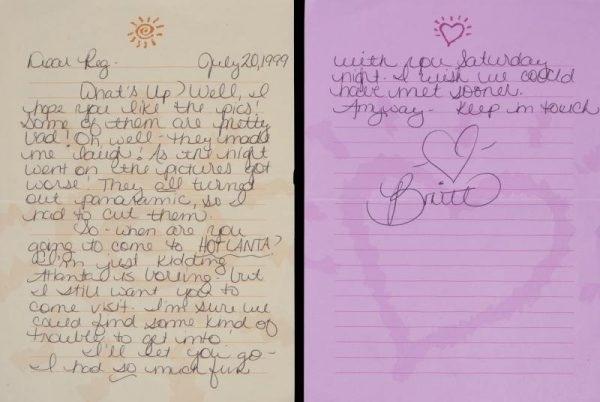 Dear Reg. July 20, 1999
What's Up? Well, I
hope you like the pics!
Some of them are pretty
bad! Oh well - they made
me laugh! As the night
went on the pictures got
worse! They all turned
out panaramic, so I
had to cut them.
So - when are you
going to come to HOTLANTA?
I'm just kidding
Atlanta is boring - but
I still want you to
come visit. I'm sure we
could find some kind of
trouble to get into
I'll let you go -
I had so much fun
with you Saturday
night. I wish we could
have met sooner.
Anyway - Keep in touch
Britt